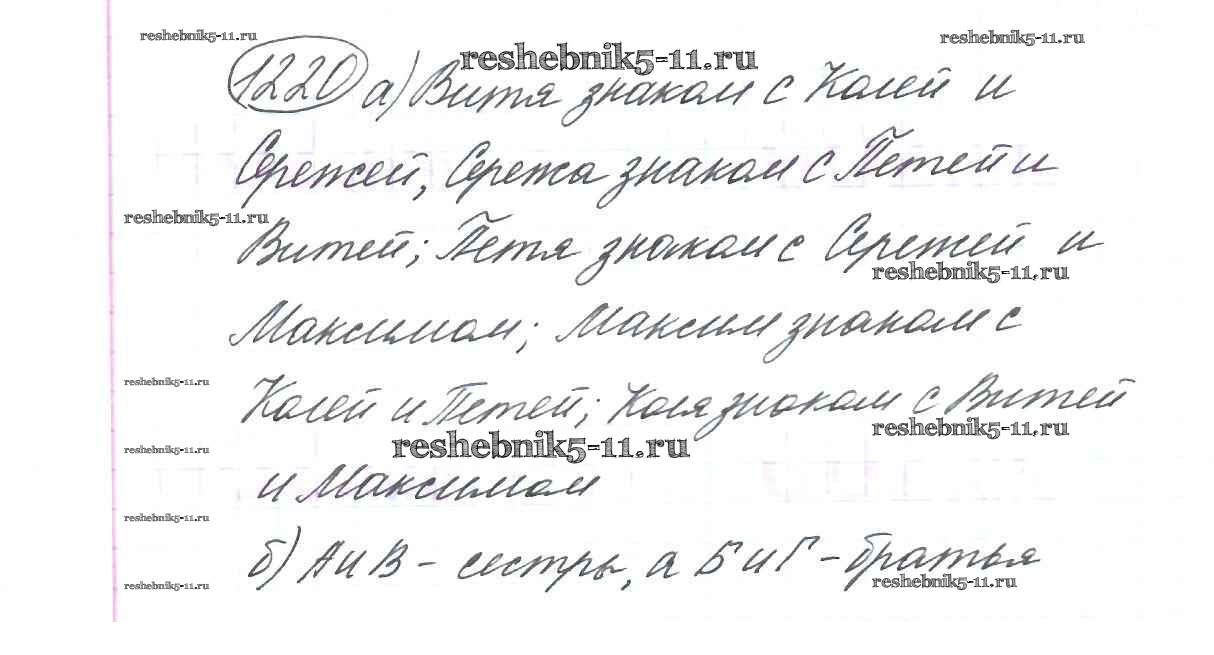 reshebnik5-11.ru
reshebnik5-11.ru
reshebnik5-11.ru
1220 а) Витя знаком с Колей и
Сережей, Сережа знаком с Петей и
reshebnik5-11.ru
Витей; Петя знаком с Сережей и
reshebnik5-11.ru
Максимом; Максим знаком с
reshebnik5-11.ru
Колей и Петей; Коля знаком с Витей
reshebnik5-11.ru
reshebnik5-11.ru
reshebnik5-11.ru
и Максимом
reshebnik5-11.ru
б) А и В - сестры, а Б и Г - братья
reshebnik5-11.ru
reshebnik5-11.ru